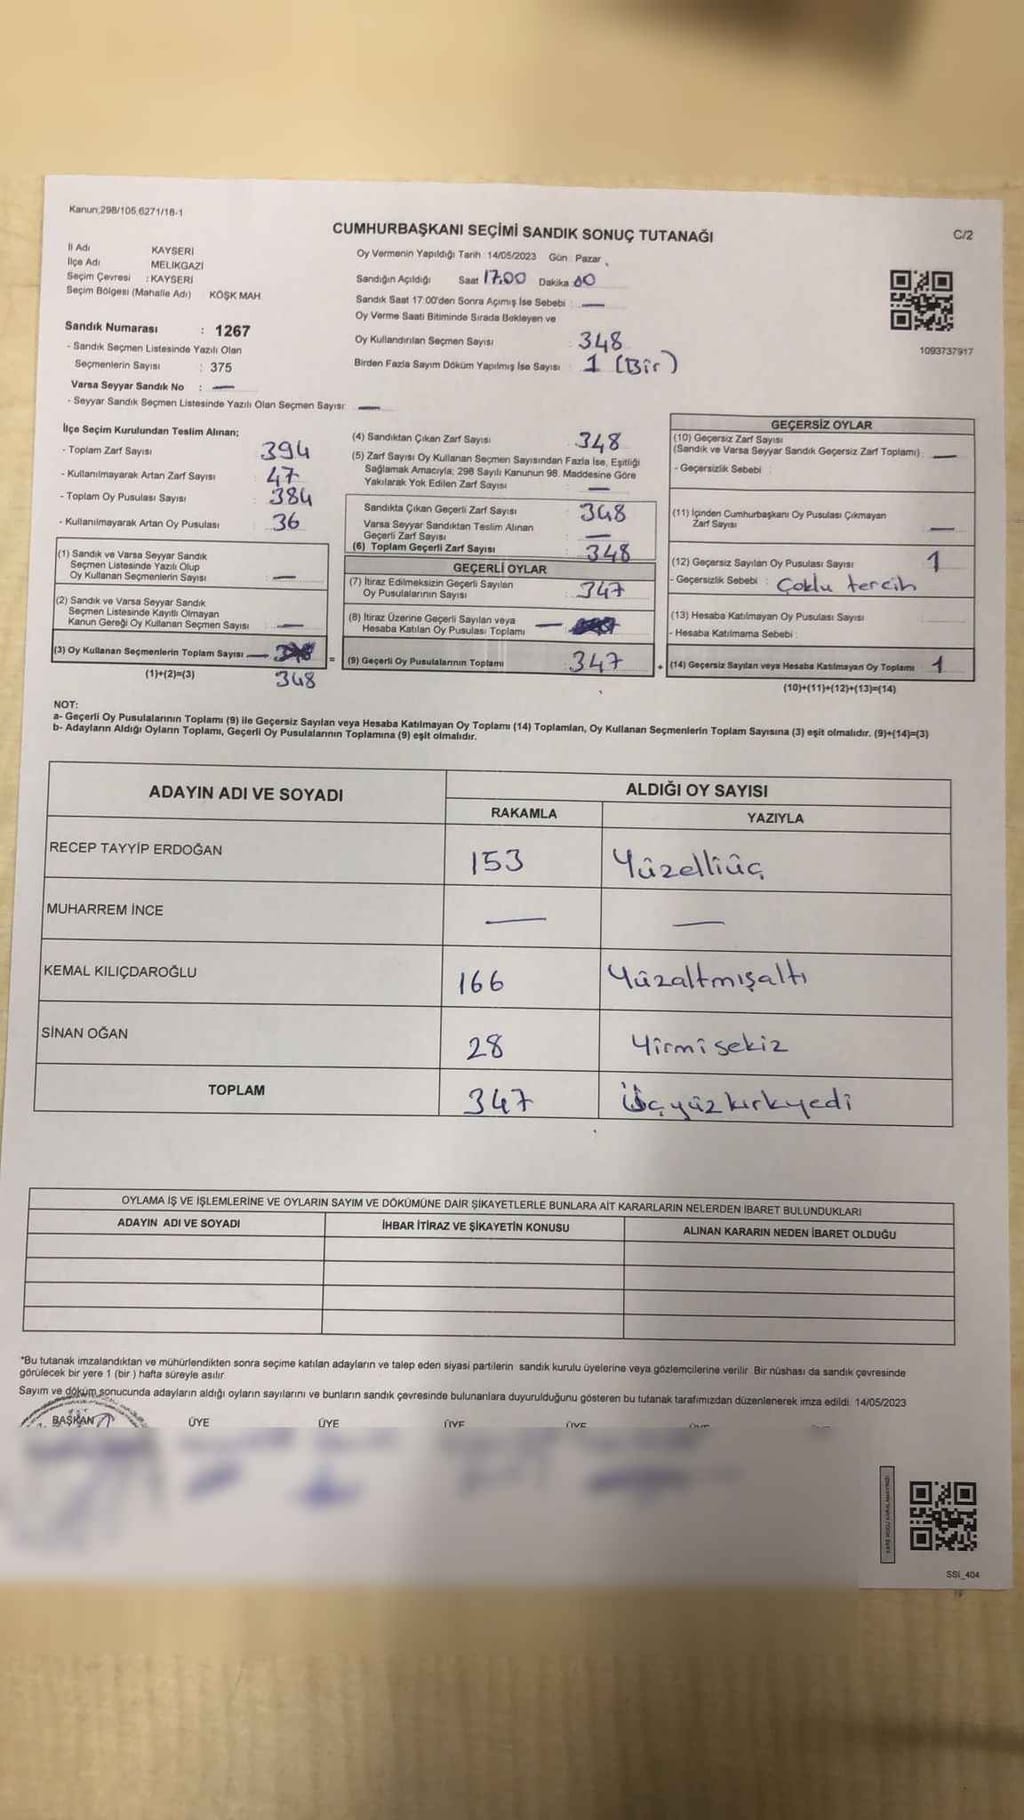 Kanun;298/105,6271/18-1
CUMHURBAŞKANI SEÇİMİ SANDIK SONUÇ TUTANAĞI
C/2
İl Adı KAYSERİ
İlçe Adı MELİKGAZİ
Seçim Çevresi : KAYSERİ
Seçim Bölgesi (Mahalle Adı) KÖŞK MAH.
Oy Vermenin Yapıldığı Tarih : 14/05/2023 Gün : Pazar
Sandığın Açıldığı Saat 17.00 Dakika 00
Sandık Saat 17:00'den Sonra Açımış İse Sebebi : —
Oy Verme Saati Bitiminde Sırada Bekleyen ve
Oy Kullandırılan Seçmen Sayısı 348
Birden Fazla Sayım Döküm Yapılmış İse Sayısı : 1 (Bir)
1093737917
Sandık Numarası : 1267
- Sandık Seçmen Listesinde Yazılı Olan
Seçmenlerin Sayısı : 375
Varsa Seyyar Sandık No : —
- Seyyar Sandık Seçmen Listesinde Yazılı Olan Seçmen Sayısı: —
İlçe Seçim Kurulundan Teslim Alınan;
- Toplam Zarf Sayısı : 394
- Kullanılmayarak Artan Zarf Sayısı : 47
- Toplam Oy Pusulası Sayısı : 384
- Kullanılmayarak Artan Oy Pusulası : 36
(1) Sandık ve Varsa Seyyar Sandık
Seçmen Listesinde Yazılı Olup
Oy Kullanan Seçmenlerin Sayısı : —
(2) Sandık ve Varsa Seyyar Sandık
Seçmen Listesinde Kayıtlı Olmayan
Kanun Gereği Oy Kullanan Seçmen Sayısı : —
(3) Oy Kullanan Seçmenlerin Toplam Sayısı —
(1)+(2)=(3) 348
(4) Sandıktan Çıkan Zarf Sayısı : 348
(5) Zarf Sayısı Oy Kullanan Seçmen Sayısından Fazla İse, Eşitliği
Sağlamak Amacıyla; 298 Sayılı Kanunun 98. Maddesine Göre
Yakılarak Yok Edilen Zarf Sayısı : —
Sandıkta Çıkan Geçerli Zarf Sayısı : 348
Varsa Seyyar Sandıktan Teslim Alınan
Geçerli Zarf Sayısı : —
(6) Toplam Geçerli Zarf Sayısı : 348
GEÇERLİ OYLAR
(7) İtiraz Edilmeksizin Geçerli Sayılan
Oy Pusulalarının Sayısı : 347
(8) İtiraz Üzerine Geçerli Sayılan veya
Hesaba Katılan Oy Pusulası Toplamı —
= (9) Geçerli Oy Pusulalarının Toplamı 347 +
GEÇERSİZ OYLAR
(10) Geçersiz Zarf Sayısı
(Sandık ve Varsa Seyyar Sandık Geçersiz Zarf Toplamı) : —
- Geçersizlik Sebebi :
(11) İçinden Cumhurbaşkanı Oy Pusulası Çıkmayan
Zarf Sayısı : —
(12) Geçersiz Sayılan Oy Pusulası Sayısı : 1
- Geçersizlik Sebebi : Çoklu tercih
(13) Hesaba Katılmayan Oy Pusulası Sayısı :
- Hesaba Katılmama Sebebi :
(14) Geçersiz Sayılan veya Hesaba Katılmayan Oy Toplamı 1
(10)+(11)+(12)+(13)=(14)
NOT:
a- Geçerli Oy Pusulalarının Toplamı (9) ile Geçersiz Sayılan veya Hesaba Katılmayan Oy Toplamı (14) Toplamları, Oy Kullanan Seçmenlerin Toplam Sayısına (3) eşit olmalıdır. (9)+(14)=(3)
b- Adayların Aldığı Oyların Toplamı, Geçerli Oy Pusulalarının Toplamına (9) eşit olmalıdır.
ADAYIN ADI VE SOYADI
ALDIĞI OY SAYISI
RAKAMLA YAZIYLA
RECEP TAYYİP ERDOĞAN 153 Yüzelliüç
MUHARREM İNCE — —
KEMAL KILIÇDAROĞLU 166 Yüzaltmışaltı
SİNAN OĞAN 28 Yirmi sekiz
TOPLAM 347 Üçyüzkırkyedi
OYLAMA İŞ VE İŞLEMLERİNE VE OYLARIN SAYIM VE DÖKÜMÜNE DAİR ŞİKAYETLERLE BUNLARA AİT KARARLARIN NELERDEN İBARET BULUNDUKLARI
ADAYIN ADI VE SOYADI İHBAR İTİRAZ VE ŞİKAYETİN KONUSU ALINAN KARARIN NEDEN İBARET OLDUĞU
*Bu tutanak imzalandıktan ve mühürlendikten sonra seçime katılan adayların ve talep eden siyasi partilerin sandık kurulu üyelerine veya gözlemcilerine verilir. Bir nüshası da sandık çevresinde
görülecek bir yere 1 (bir ) hafta süreyle asılır.
Sayım ve döküm sonucunda adayların aldığı oyların sayılarını ve bunların sandık çevresinde bulunanlara duyurulduğunu gösteren bu tutanak tarafımızdan düzenlenerek imza edildi. 14/05/2023
BAŞKAN ÜYE ÜYE ÜYE ÜYE
SSİ_404